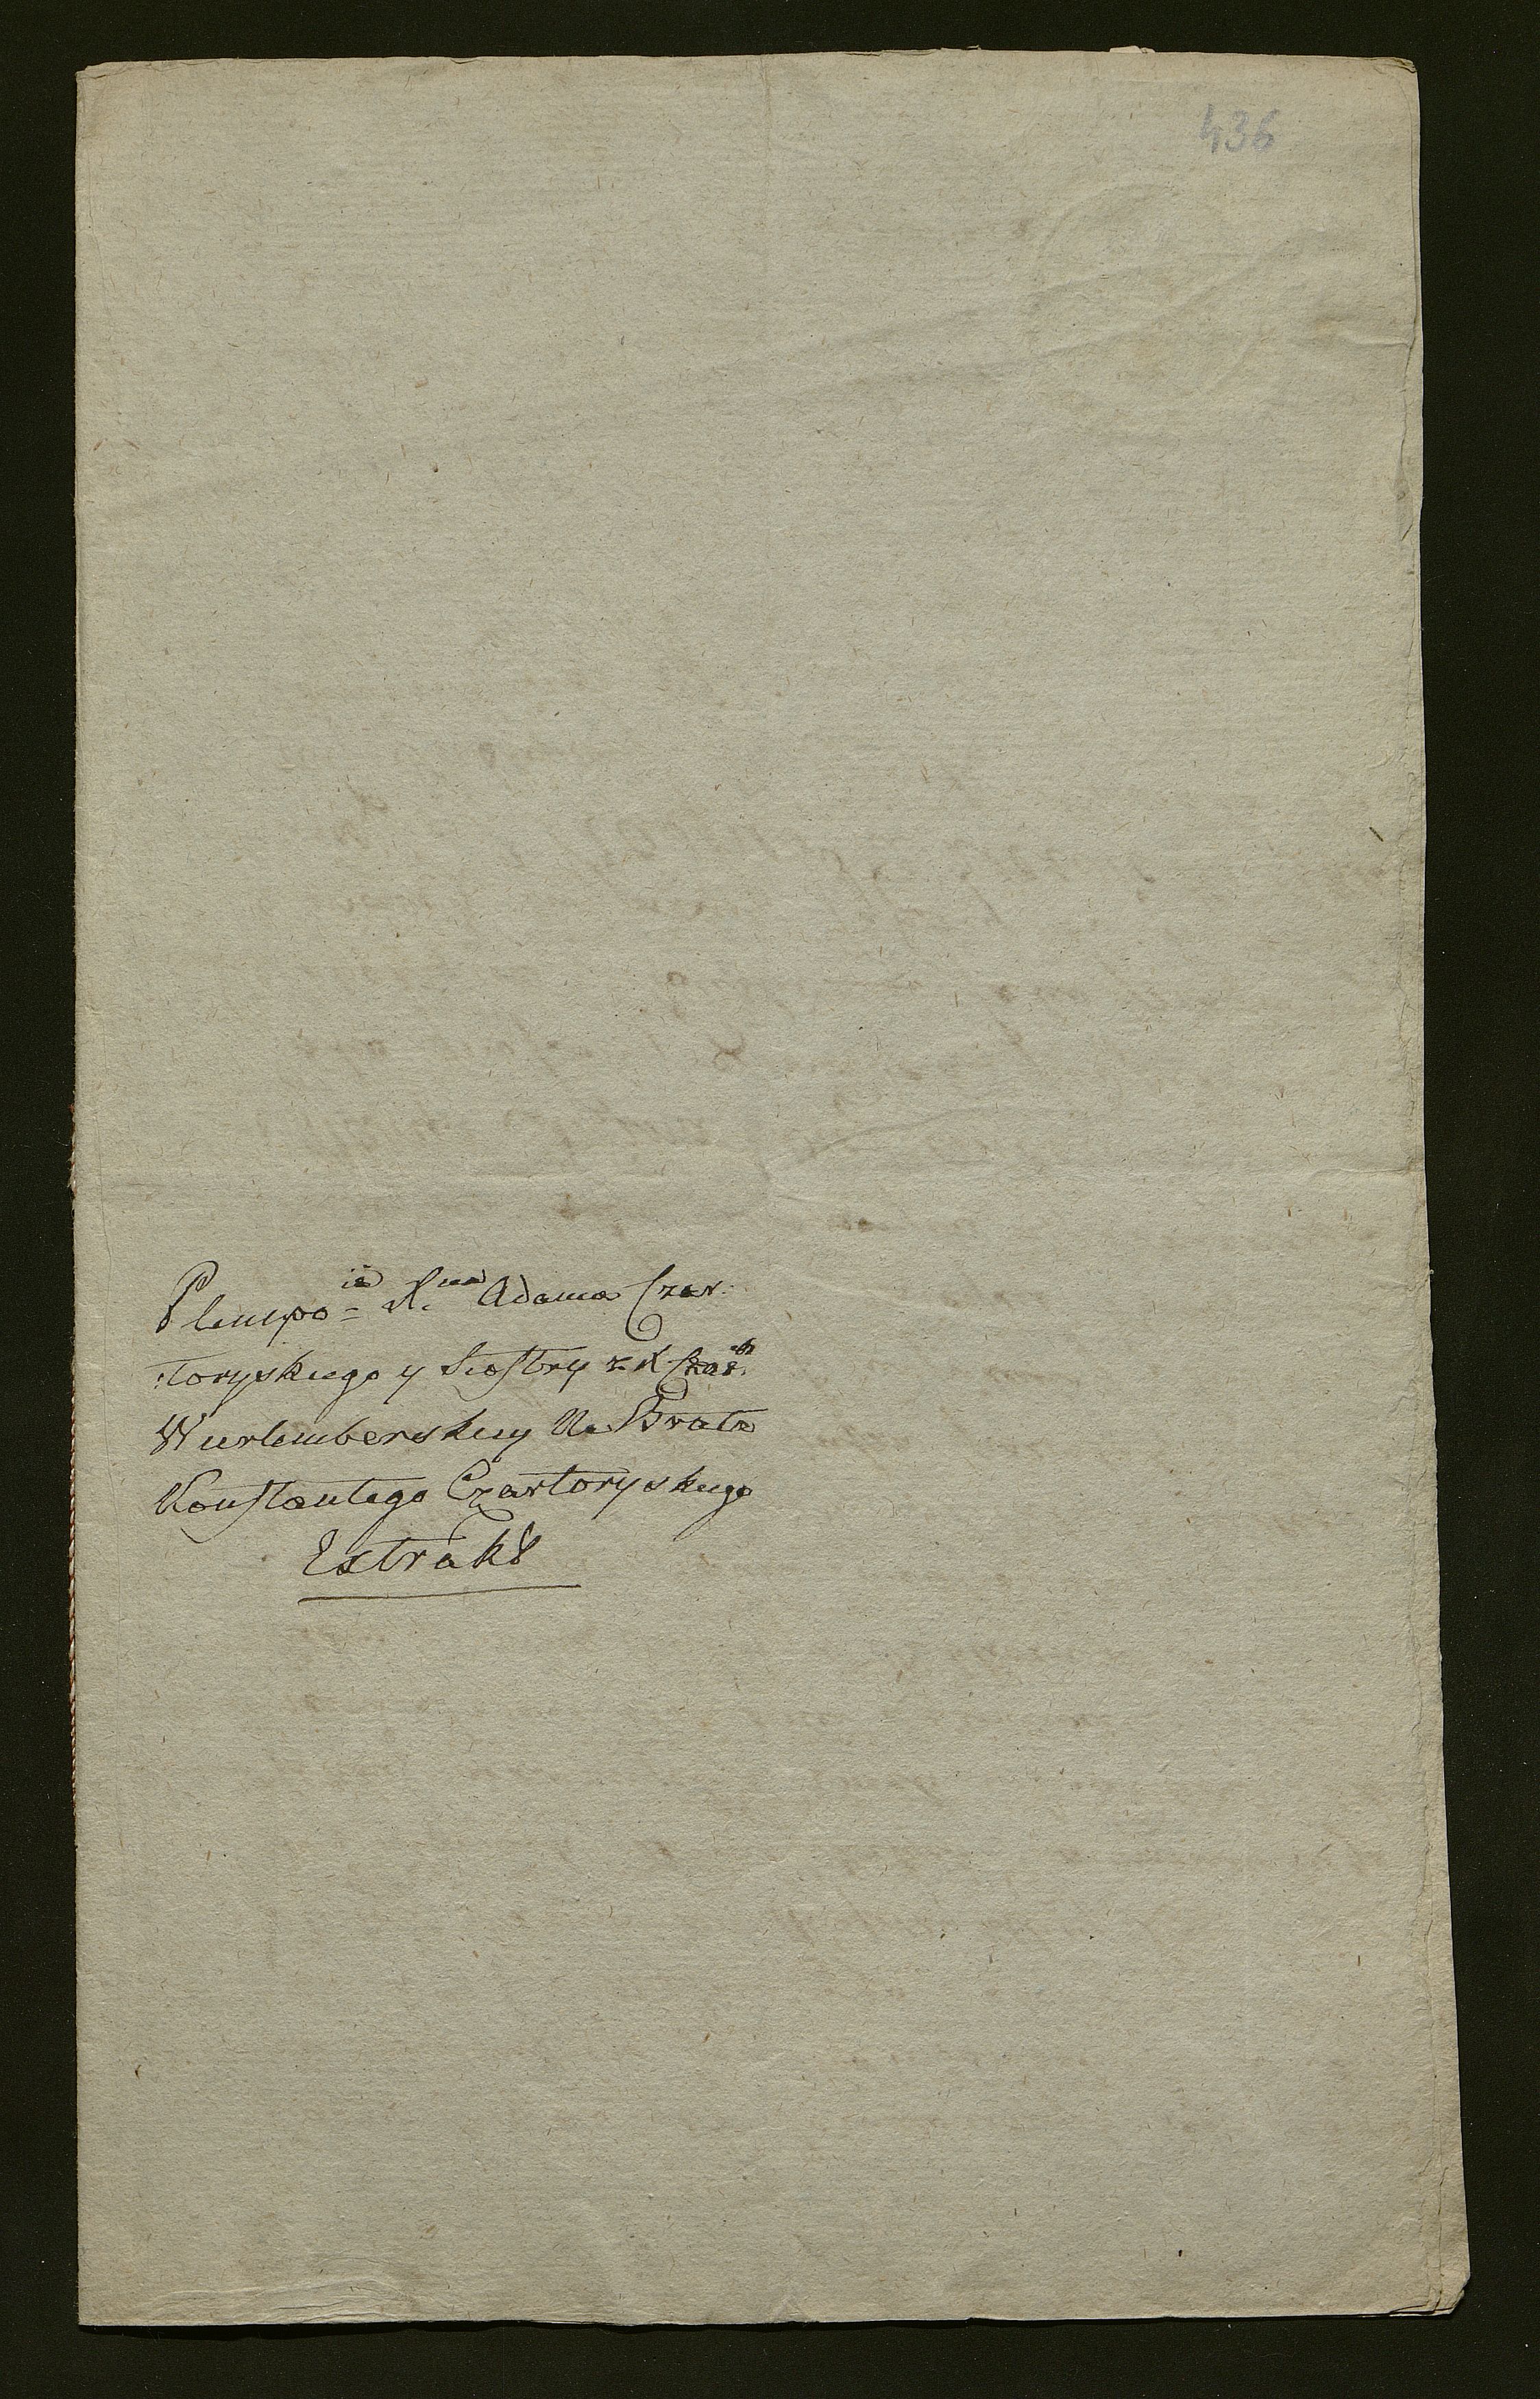 436
Plenipo=ia X.cia Adama Czar:
:toryskiego y Siostry z X Czar:ch
Wurlemberskiey Na Brata
Konstantego Czartoryskiego
Extrakt